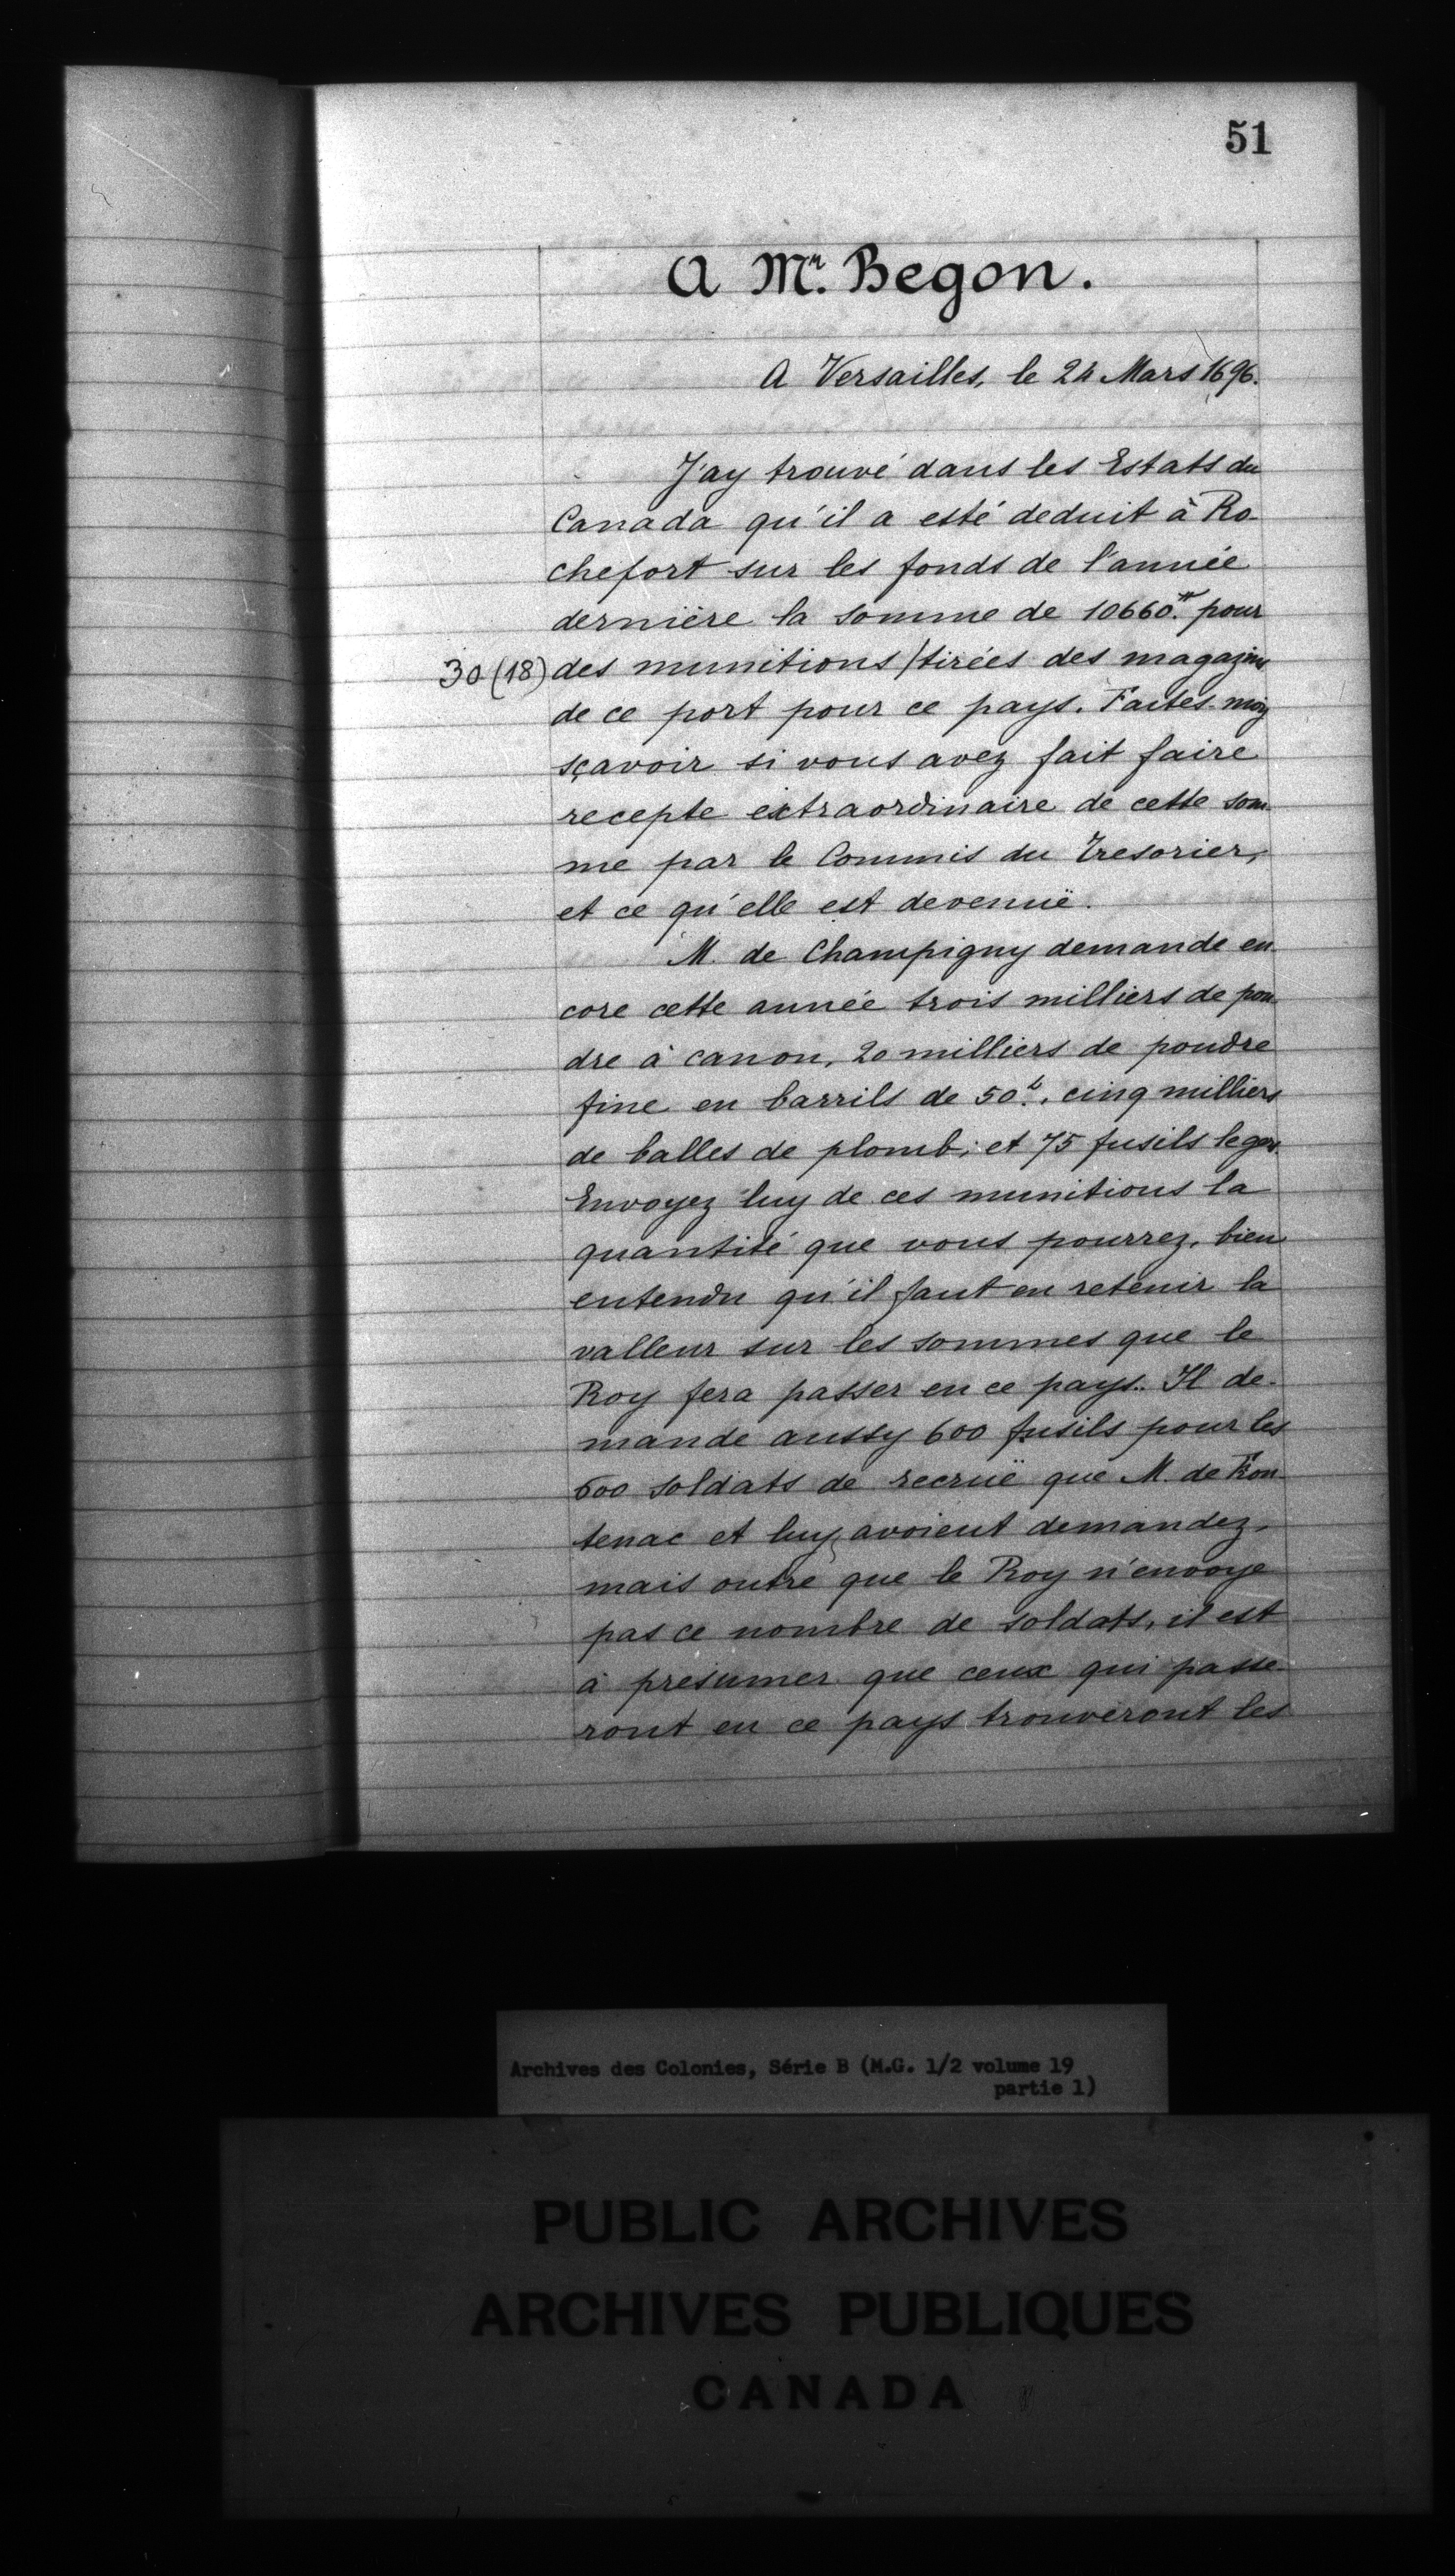 51
A Mr. Begon.
A Versailles, le 24 Mars 1696.
J'ay trouvé dans les Estats du
Canada qu'il a esté deduit à Ro-
chefort sur les fonds de l'année
dernière la somme de 10660.ᵗᵗ pour
30 (18) des munitions / tirées des magazins
de ce port pour ce pays. Faites-moy
sçavoir si vous avez fait faire
recepte extraordinaire de cette som-
me par le Commis du Tresorier,
et ce qu'elle est devenuë.
M. de Champigny demande en-
core cette année trois milliers de pou-
dre à canon, 20 milliers de poudre
fine en barrils de 50.ᵗ, cinq milliers
de balles de plomb; et 75 fusils legers.
Envoyez luy de ces munitions la
quantité que vous pourrez, bien
entendu qu'il faut en retenir la
valleur sur les sommes que le
Roy fera passer en ce pays.. Il de-
mande aussy 600 fusils pour les
600 soldats de recruë que M. de Fron-
tenac et luy avoient demandez,
mais outre que le Roy n'envoye
pas ce nombre de soldats, il est
à presumer que ceux qui passe-
ront en ce pays trouveront les
Archives des Colonies, Série B (M.G. 1/2 volume 19
partie 1)
PUBLIC ARCHIVES
ARCHIVES PUBLIQUES
CANADA